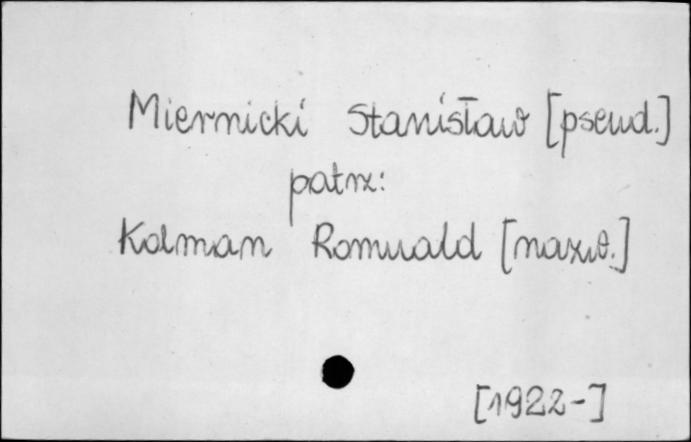 Miernicki Stanisław [pseud.]
patrz:
Kalman Romuald [nazw.]
[1922-]